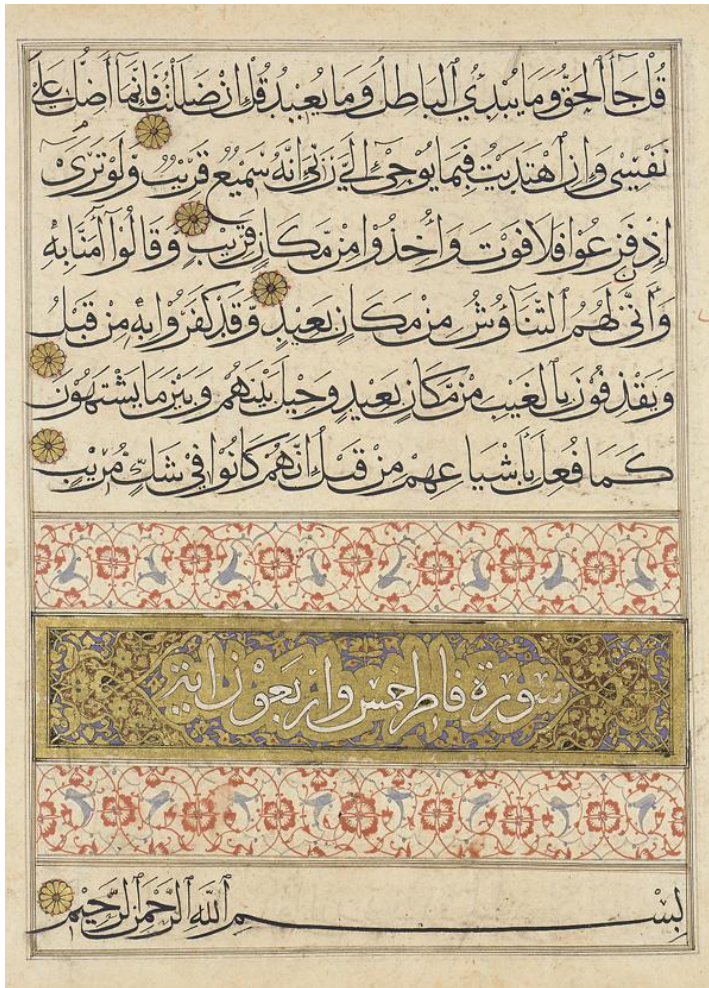 قُلْ جَآءَ الْحَقُّ وَمَا يُبْدِئُ الْبَاطِلُ وَمَا يُعِيدُ قُلْ اِنْ ضَلَلْتُ فَاِنَّمَآ اَضِلُّ عَلٰى
نَفْسِى وَاِنِ اهْتَدَيْتُ فَبِمَا يُوحِىٓ اِلَىَّ رَبِّىٓ اِنَّهُ سَمِيعٌ قَرِيبٌ وَلَوْ تَرٰىٓ
اِذْ فَزِعُوا فَلَا فَوْتَ وَاُخِذُوا مِنْ مَكَانٍ قَرِيبٍ وَقَالُوٓا اٰمَنَّا بِهٖ
وَاَنّٰى لَهُمُ التَّنَاؤُشُ مِنْ مَكَانٍ بَعِيدٍ وَقَدْ كَفَرُوا بِهٖ مِنْ قَبْلُ
وَيَقْذِفُونَ بِالْغَيْبِ مِنْ مَكَانٍ بَعِيدٍ وَحِيلَ بَيْنَهُمْ وَبَيْنَ مَا يَشْتَهُونَ
كَمَا فُعِلَ بِاَشْيَاعِهِمْ مِنْ قَبْلُ اِنَّهُمْ كَانُوا فِى شَكٍّ مُرِيبٍ
سورة فاطر خمس واربعون اية
بِسْمِ اللّٰهِ الرَّحْمٰنِ الرَّحِيمِ